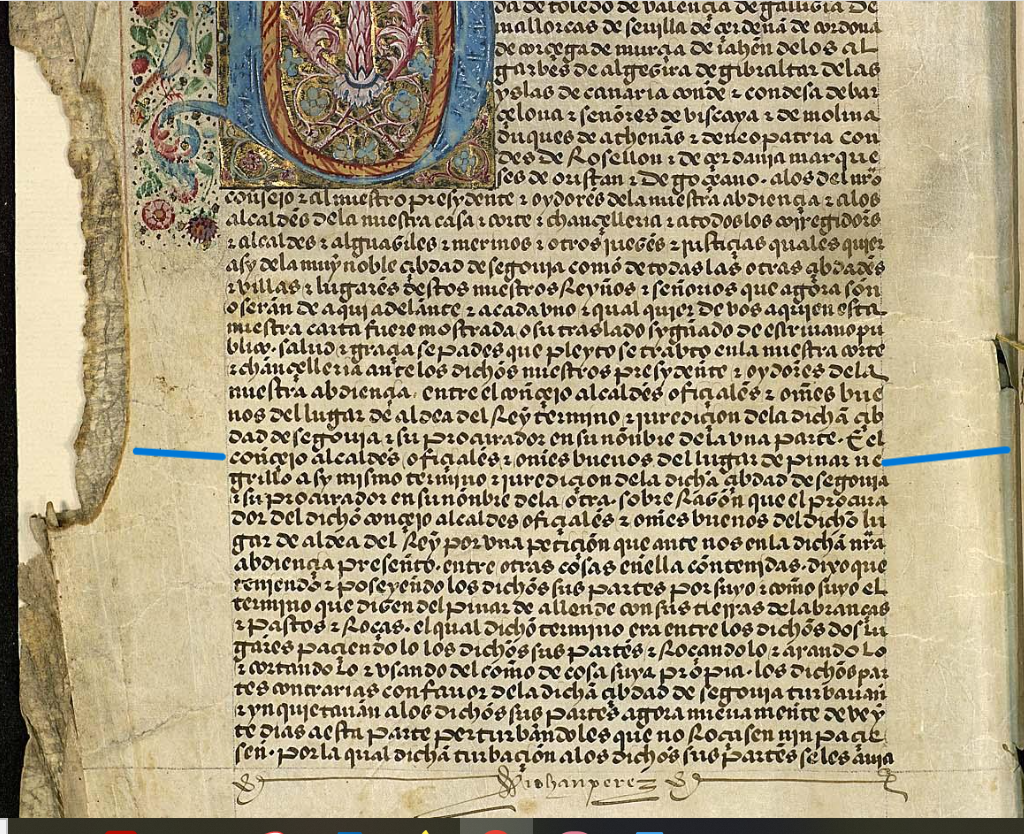 da de toledo de valençia de gallizia de
mallorcas de seuilla de çerdeña de cordoua
de corçega de murçia de iahen delos al
garbes de algezira de gibraltar delas
yslas de canaria conde ⁊ condesa de bar
çelona ⁊ señores de viscaya ⁊ de molina
duques de athenas ⁊ de neopatria con
des de Rosellon ⁊ de çerdania marque
ses de oristan ⁊ de goçeano. alos del nr̃o
consejo ⁊ al nuestro presydente ⁊ oydores dela nuestra abdiençia ⁊ alos
alcaldes dela nuestra casa ⁊ corte ⁊ chançelleria ⁊ atodos los corregidores
⁊ alcaldes ⁊ alguasiles ⁊ merinos ⁊ otros jueses ⁊ justiçias quales quier
asy dela muy noble çibdad de segouia como de todas las otras çibdades
⁊ villas ⁊ lugares destos nuestros Reynos ⁊ señorios que agora son
o seran de aqui adelante ⁊ acada vno ⁊ qual quier de vos aquien esta
nuestra carta fuere mostrada o su traslado sygnado de escriuano pu
blico. salud ⁊ graçia sepades que pleyto se trabto enla nuestra corte
⁊ chançelleria ante los dichos nuestros presydente ⁊ oydores dela
nuestra abdiençia, entre el conçejo alcaldes ofiçiales ⁊ omes bue
nos del lugar de aldea del Rey termino ⁊ juredicion dela dicha çib
dad de segouia ⁊ su procurador en su nonbre dela vna parte. E el
conçejo alcaldes ofiçiales ⁊ omes buenos del lugar de pinar ne
grillo asy mismo termino ⁊ juredicion dela dicha çibdad de segouia
⁊ su procurador en su nonbre dela otra. sobre Razon que el procura
dor del dicho conçejo alcaldes ofiçiales ⁊ omes buenos del dicho lu
gar de aldea del Rey por vna petiçion que ante nos enla dicha nr̃a
abdiençia presento. entre otras cosas enella contenidas. dixo que
teniendo ⁊ poseyendo los dichos sus partes por suyo ⁊ como suyo el
termino que disen del pinar de allende con sus tierras de labranças
⁊ pastos ⁊ Roças. el qual dicho termino era entre los dichos dos lu
gares paçiendo lo los dichos sus partes ⁊ Roçandolo ⁊ arando lo
⁊ cortando lo ⁊ vsando del como de cosa suya propia. los dichos par
tes contrarias con fauor dela dicha çibdad de segouia turbauan
⁊ ynquietauan alos dichos sus partes agora nueuamente de vey
te dias aesta parte perturbandoles que no Roçasen nin paçie
sen. por la qual dicha turbaçion alos dichos sus partes se les auia
johan perez